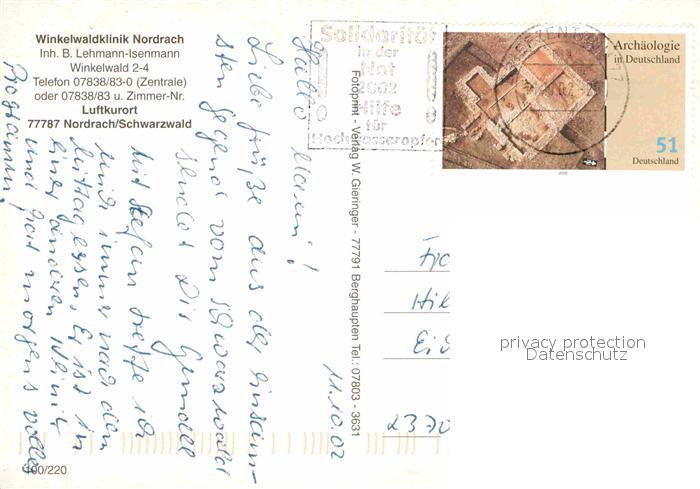 Winkelwaldklinik Nordrach
Inh. B. Lehmann-Isenmann
Winkelwald 2-4
Telefon 07838/83-0 (Zentrale)
oder 07838/83 u. Zimmer-Nr.
Luftkurort
77787 Nordrach/Schwarzwald
Solidarität
in der
Not
2002
Hilfe
für
Hochwasseropfer
Archäologie
in Deutschland
51
Deutschland
Fotoprint - Verlag W. Gieringer - 77791 Berghaupten Tel.: 07803 - 3631
11.10.02
Hallo
Liebe Grüße aus der einsam-
sten Gegend vom Schwarzwald
sendet Dir
Mit Stefan treffe ich
mich immer nach dem
Mittagessen. Er ist in
einer anderen Klinik
und hat morgens volles
Programm.
Hil
2370
privacy protection
Datenschutz
100/220